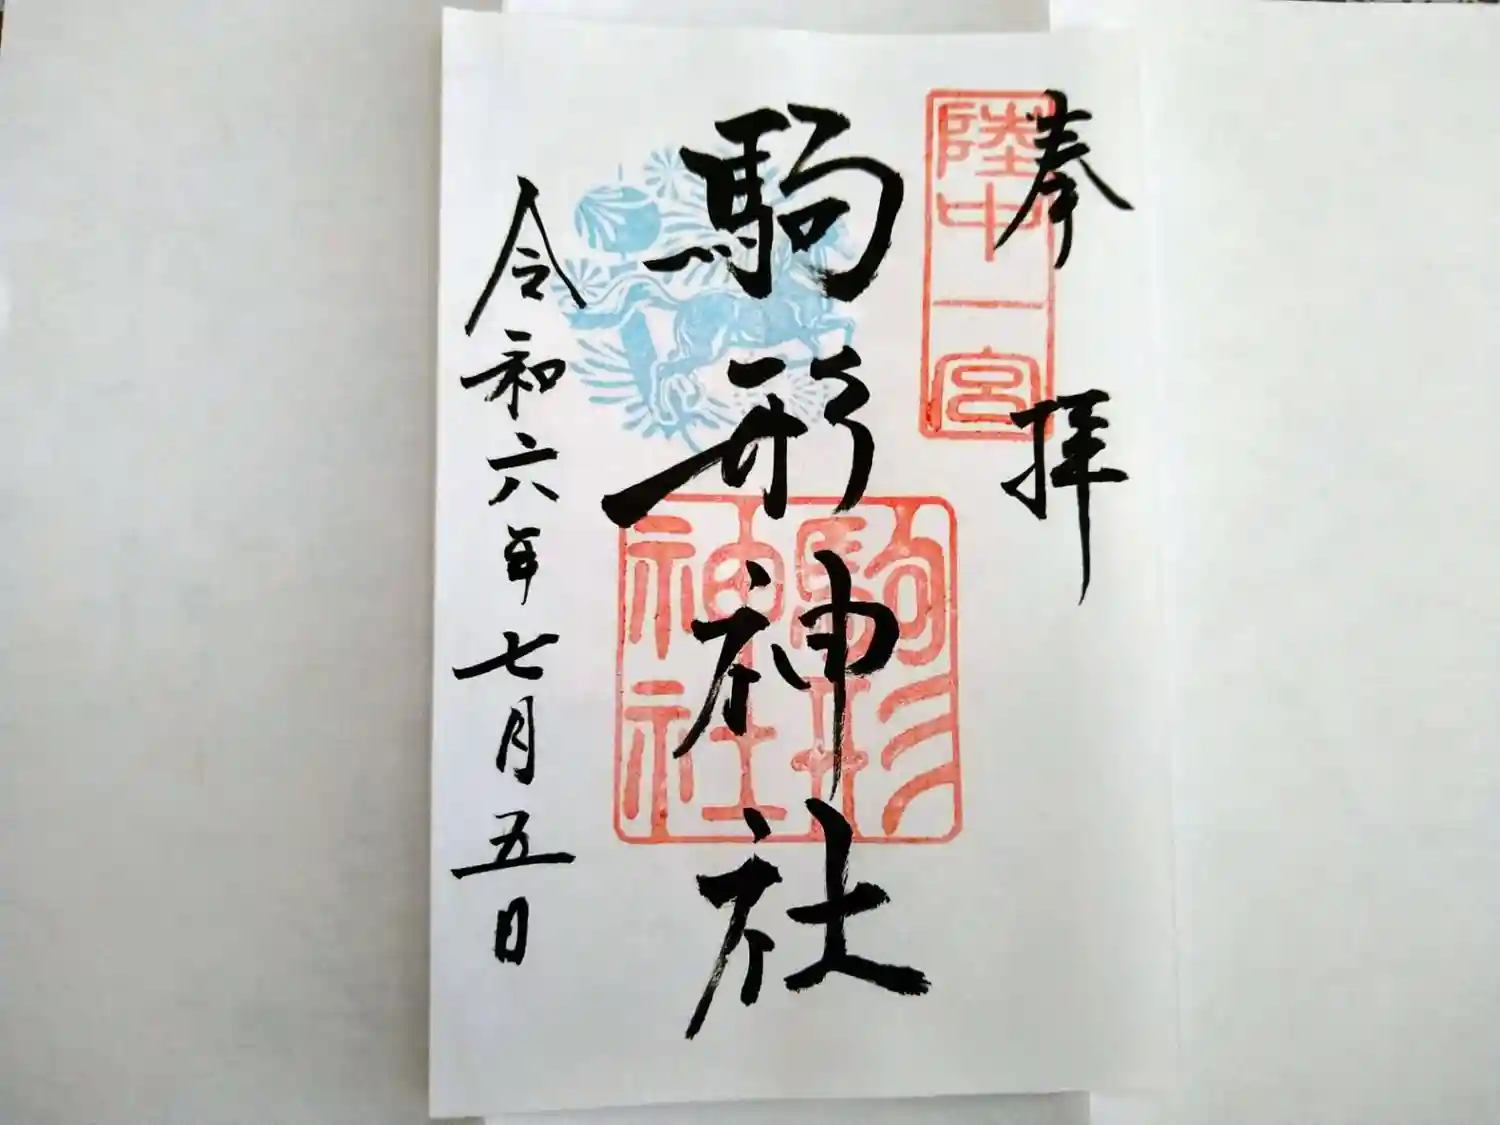 奉拝
陸中一宮
駒形神社
駒形
神社
令和六年七月五日